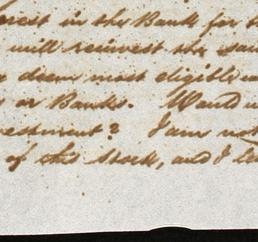 erest in the Bank for th
will reinvest the sam
deem most eligible
s or Banks. Would
vestment? I am not
of this Stock, and I